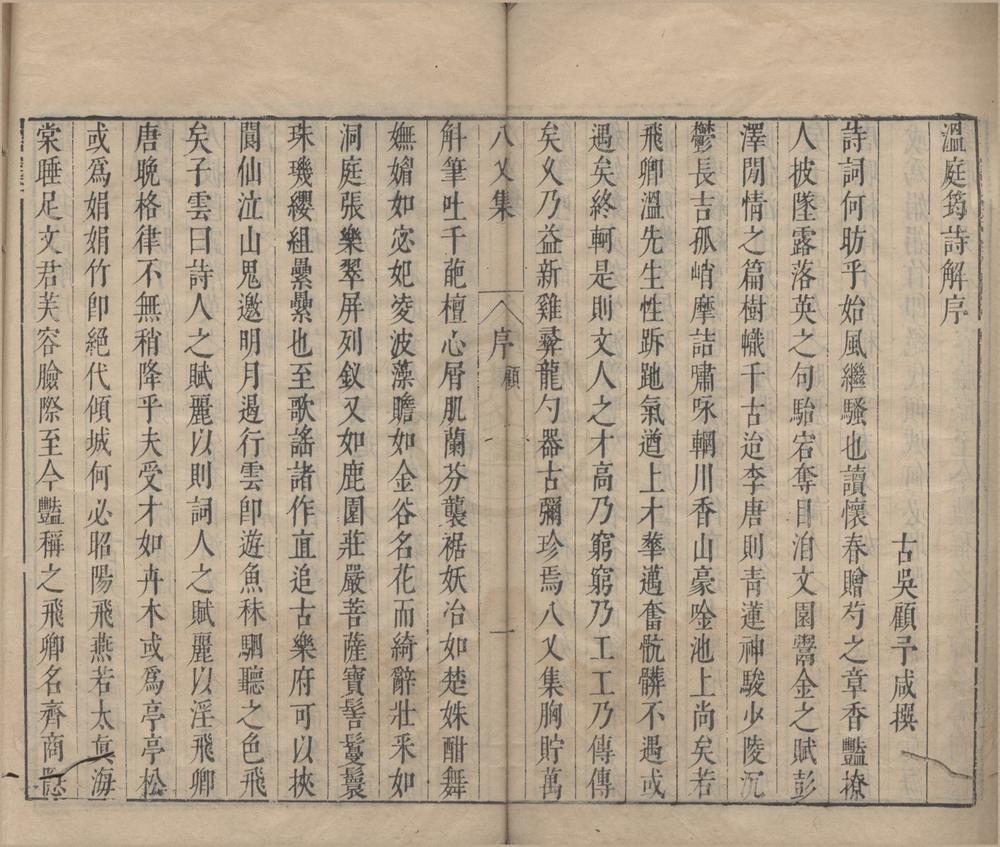 溫庭筠詩解序
古吳顧予咸撰
詩詞何昉乎始風繼騷也讀懷春贈芍之章香豔撩
人披墜露落英之句駘宕奪目洎文園鬻金之賦彭
澤閒情之篇樹幟千古迨李唐則青蓮神駿少陵沉
鬱長吉孤峭摩詰嘯咏輞川香山豪唫池上尚矣若
飛卿溫先生性跅跎氣遒上才華邁奮骯髒不遇或
遇矣終軻是則文人之才高乃窮窮乃工工乃傳傳
矣乂乃益新雞彝龍勺器古彌珍焉八乂集胸貯萬
八乂集
序
顧
一
斛筆吐千葩檀心屑肌蘭芬襲裾妖冶如楚姝酣舞
嫵媚如宓妃凌波藻贍如金谷名花而綺辭壯采如
洞庭張樂翠屏列釵又如鹿園莊嚴菩薩寶髻鬘鬟
珠璣纓組纍纍也至歌謠諸作直追古樂府可以挾
閬仙泣山鬼邀明月遏行雲卽遊魚秣駟聽之色飛
矣子雲曰詩人之賦麗以則詞人之賦麗以淫飛卿
唐晚格律不無稍降乎夫受才如卉木或爲亭亭松
或爲娟娟竹卽絕代傾城何必昭陽飛燕若太眞海
棠睡足文君芙容臉際至今豔稱之飛卿名齊商隱